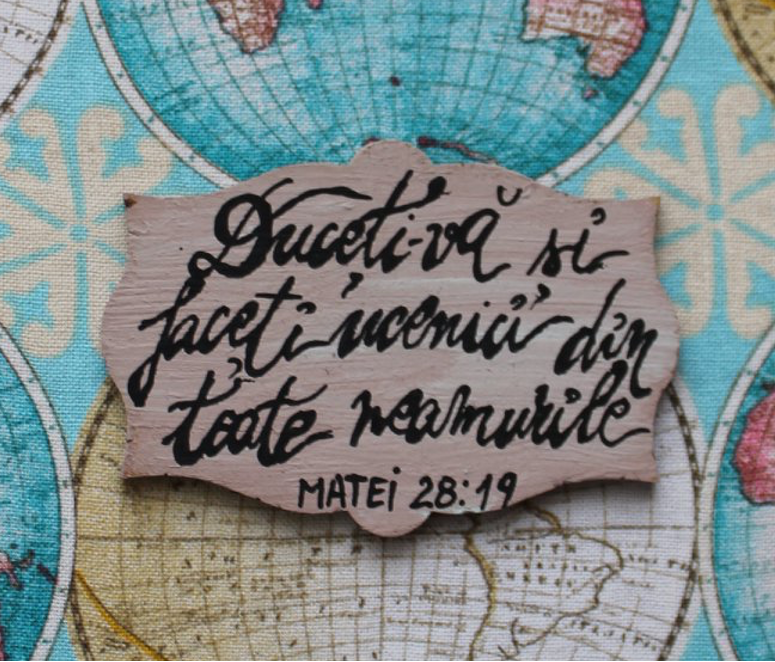 Duceti-vă si
faceţi ucenici din
toate neamurile
MATEi 28:19